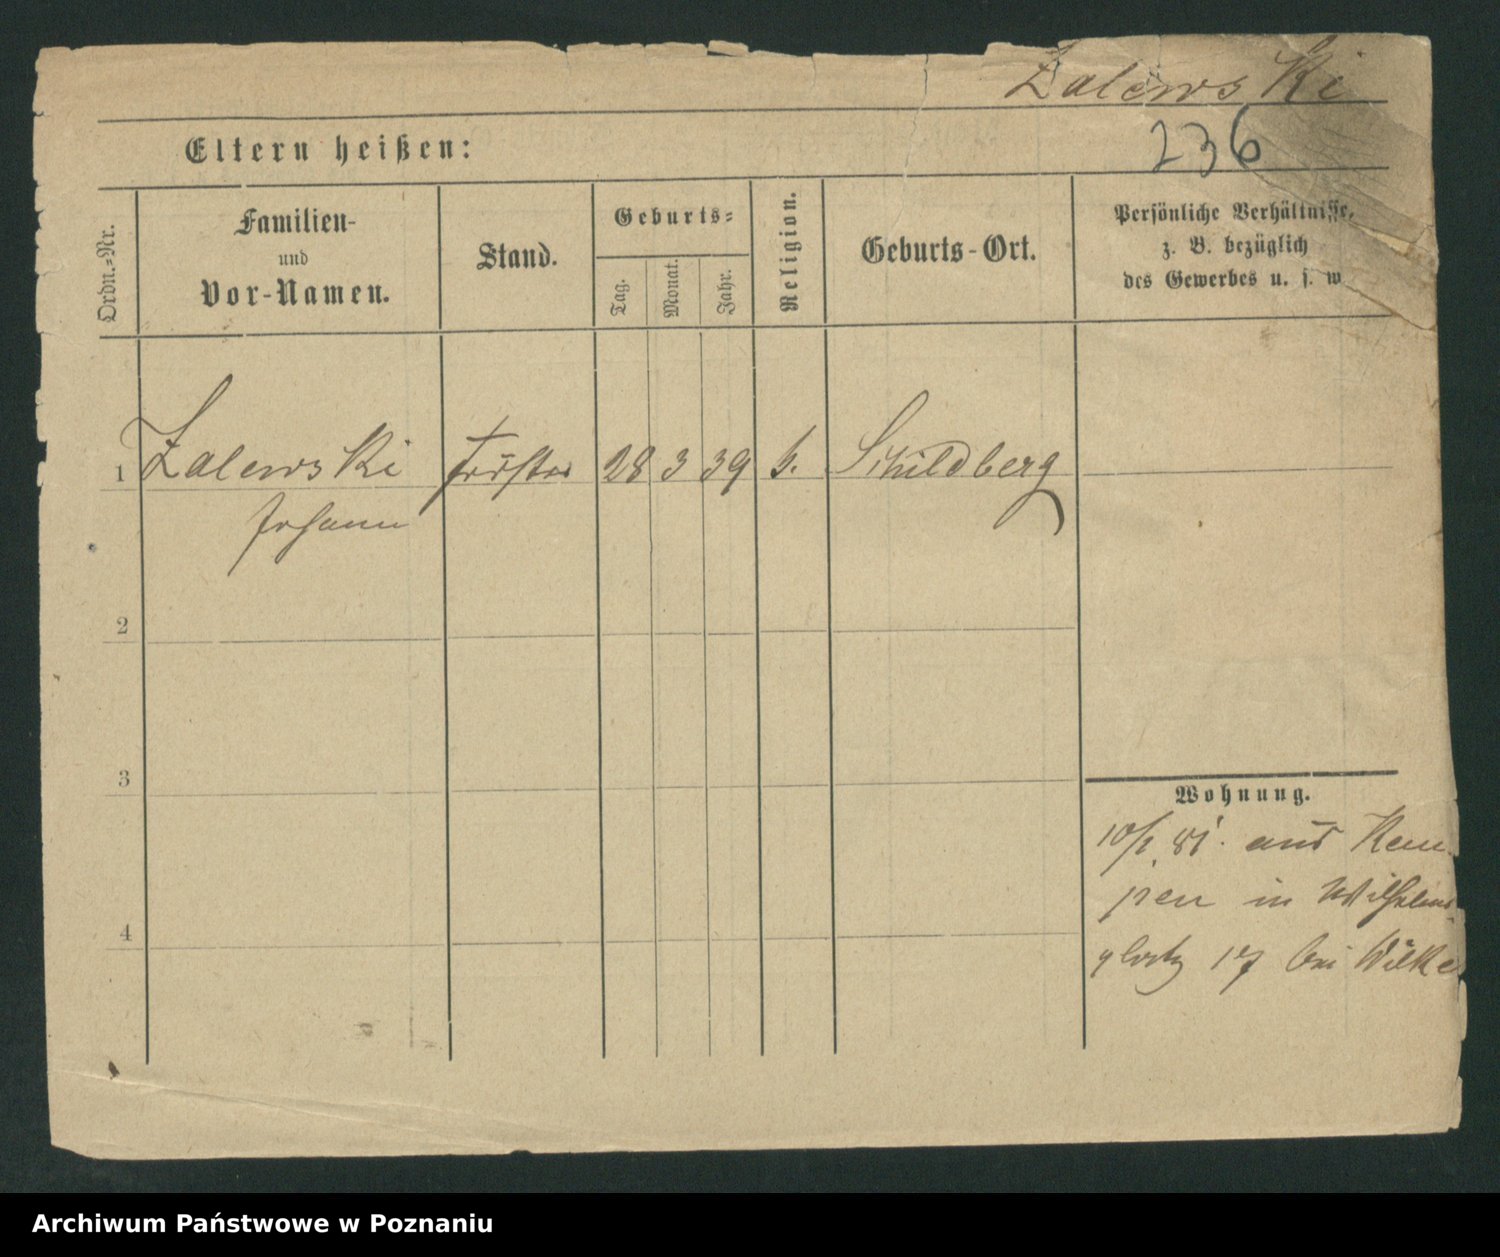 Zalewski
236
Eltern heißen:
Ordn.-Nr.
Familien-
und
Vor-Namen.
Stand.
Geburts-
Tag.
Monat.
Jahr.
Religion.
Geburts-Ort.
Persönliche Verhältnisse,
z. B. bezüglich
des Gewerbes u. s. w
1 Zalewski 28 3 39 Schildberg
Johann
2
3
Wohnung.
10/1 81. aus Kem-
pen in Wilhelms-
platz 17 bei Wilke
4
Archiwum Państwowe w Poznaniu